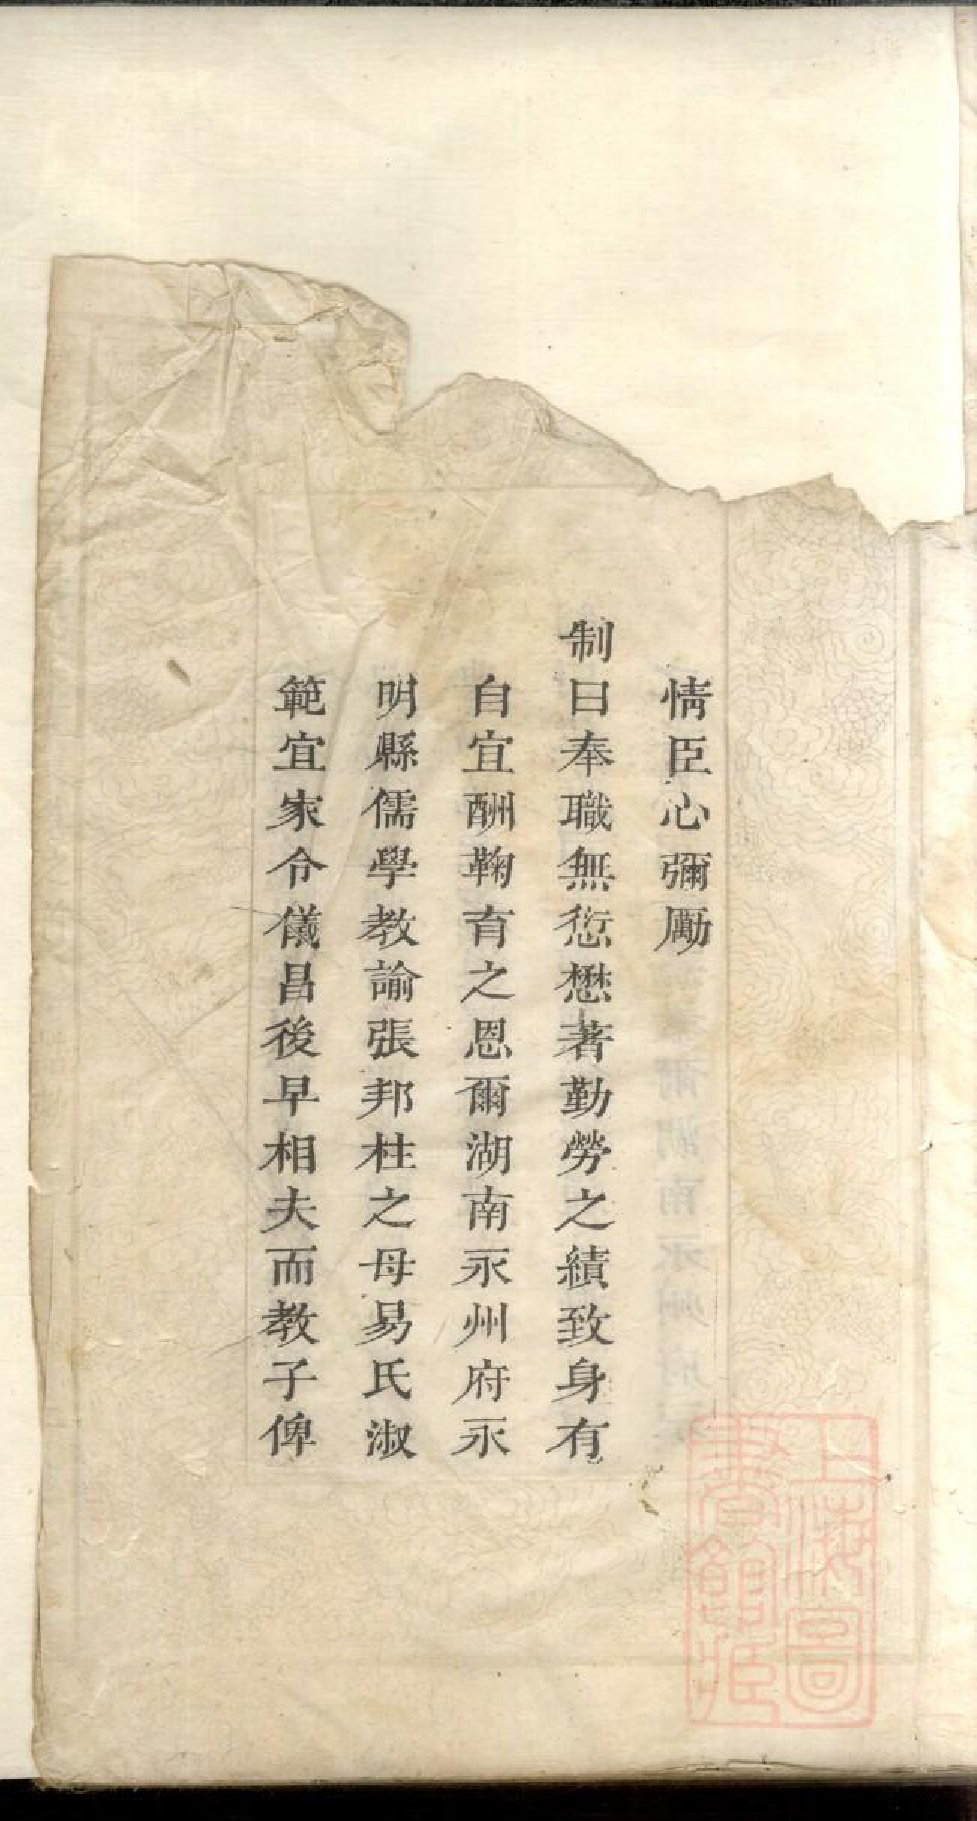 情臣心彌勵
制曰奉職無愆懋著勤勞之績致身有
自宜酬鞠育之恩爾湖南永州府永
明縣儒學教諭張邦柱之母易氏淑
範宜家令儀昌後早相夫而教子俾
上海圖
書館藏